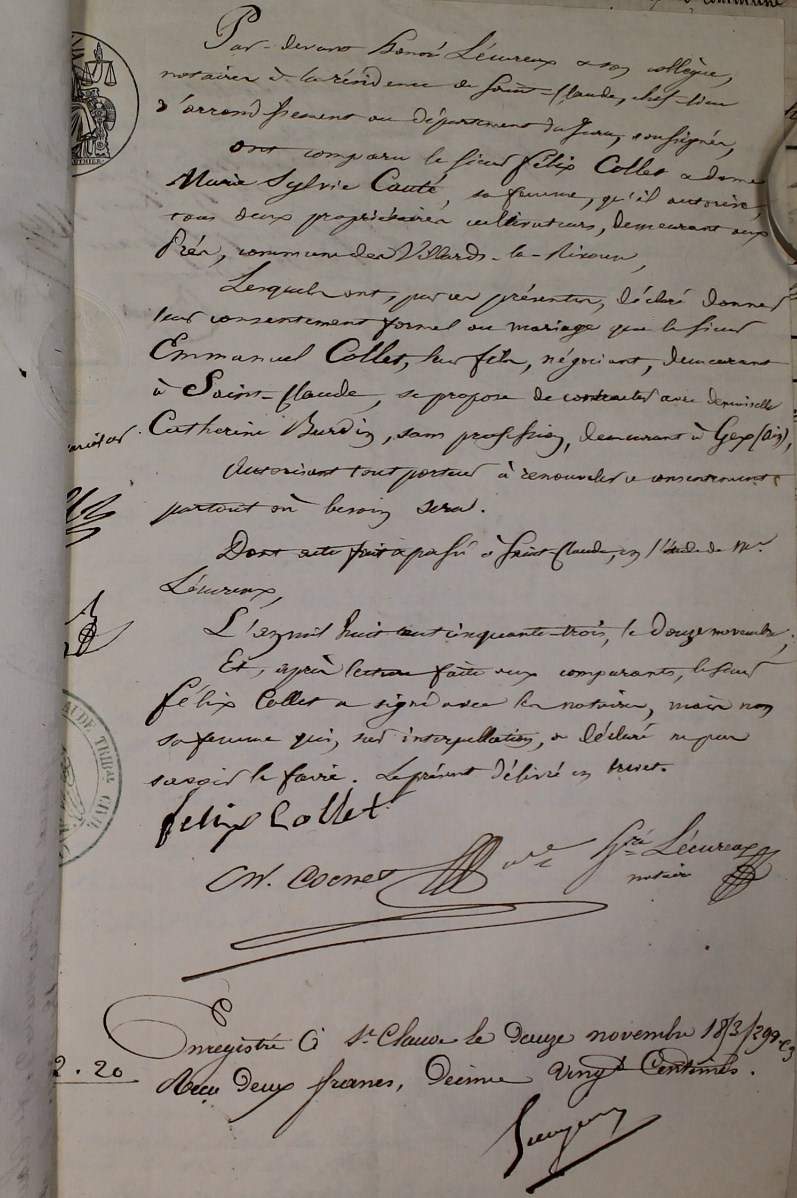 Par-devant Honoré Lécureux & son collègue,
notaires à la résidence de Saint-Claude, chef-lieu
d'arrondissement au département du Jura, soussignés,
Ont comparu le sieur Félix Collet & dame
Marie Sylvie Cauté, sa femme, qu'il autorise,
tous deux propriétaires cultivateurs, demeurant aux
Prés, commune des Villards-la-Rixouse,
Lesquels ont, par ces présentes, déclaré donner
leur consentement formel au mariage que le sieur
Emmanuel Collet, leur fils, négociant, demeurant
à Saint-Claude, se propose de contracter avec demoiselle
Catherine Burdin, sans profession, demeurant à Gex (Ain),
Autorisant tout porteur à renouveler ce consentement
partout où besoin sera.
Dont acte fait & passé à Saint-Claude, en l'étude de Me
Lécureux,
L'an mil huit cent cinquante-trois, le douze novembre;
Et, après lecture faite aux comparants, le sieur
Félix Collet a signé avec les notaires, mais non
sa femme qui, sur interpellation, a déclaré ne pas
savoir le faire. Le présent délivré en brevet.
felix Collet
not. Hré Lécureux
notaire
Enregistré à St Claude le douze novembre 1853
2.20
Reçu deux francs, décime vingt Centimes.
CLAUDE TRIBAL CIVIL